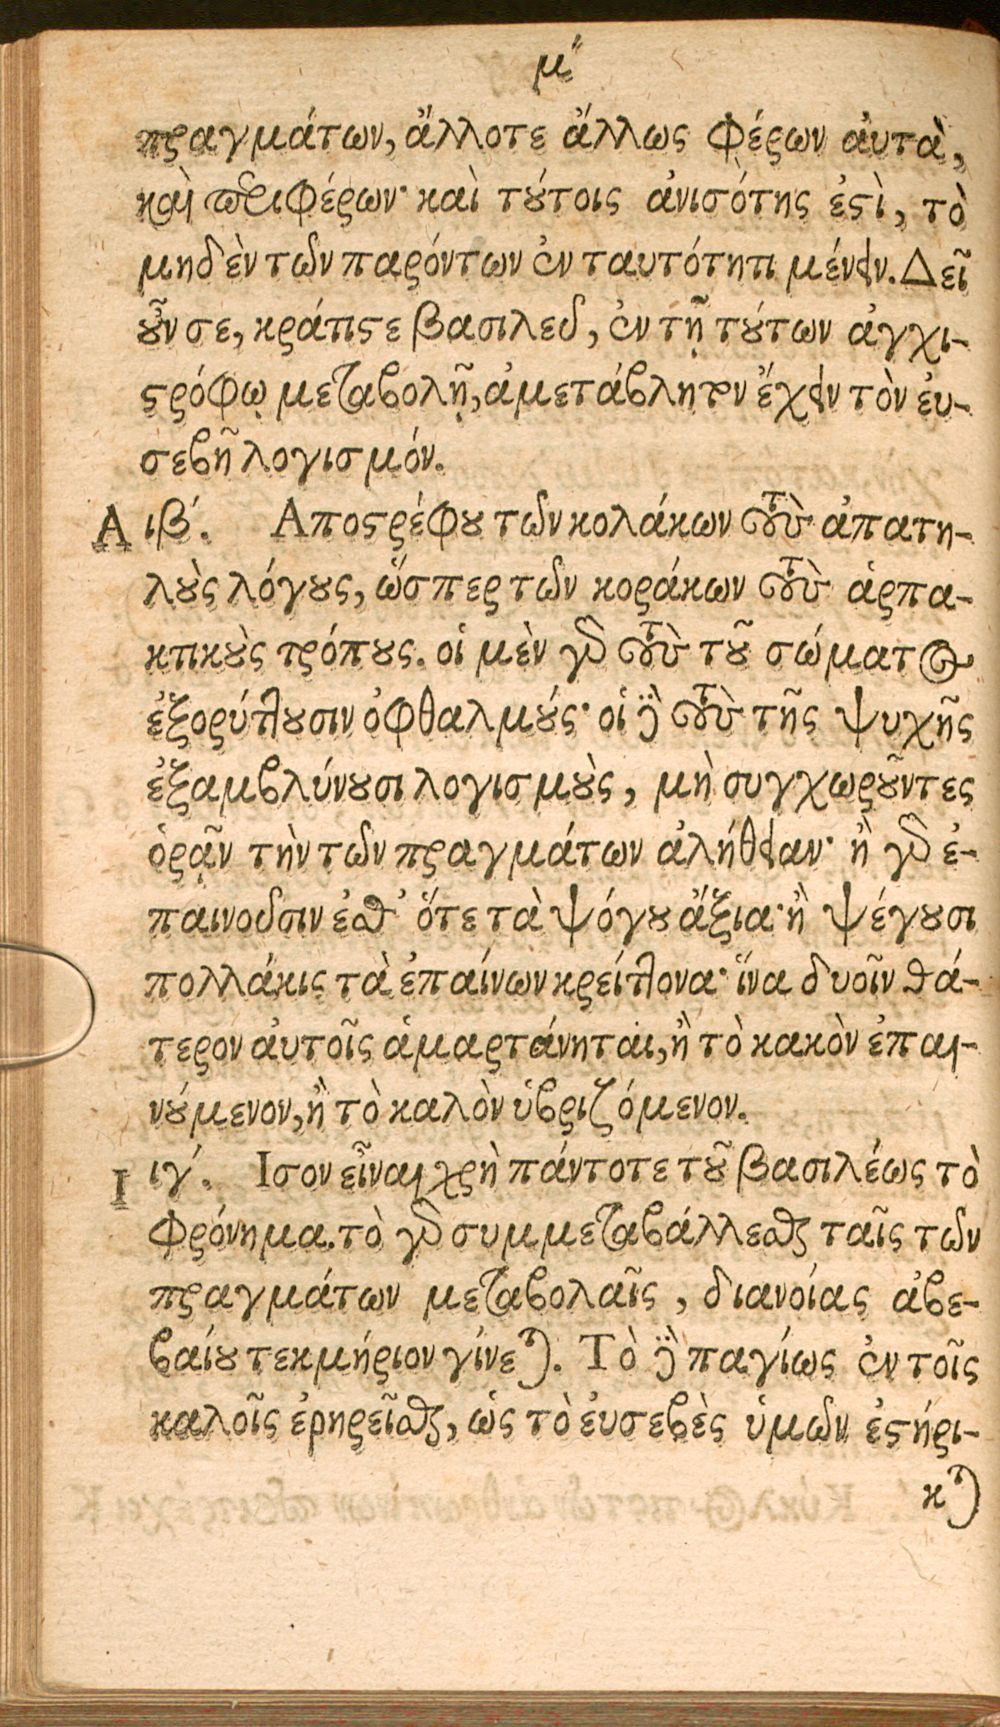 μʹ
πραγμάτων, ἄλλοτε ἄλλως φέρων ἀυτὰ,
καὶ περιφέρων· καὶ τούτοις ἀνισότης ἐστὶ, τὸ
μηδὲν τῶν παρόντων ἐν ταυτότητι μένειν. Δεῖ
οὖν σε, κράτιστε βασιλεῦ, ἐν τῇ τούτων ἀγχι-
στρόφῳ μεταβολῇ, ἀμετάβλητον ἔχειν τὸν ἐυ-
σεβῆ λογισμόν.
Α ιβʹ. Αποστρέφου τῶν κολάκων τοὺς ἀπατη-
λοὺς λόγους, ὥσπερ τῶν κοράκων τοὺς ἁρπα-
κτικοὺς τρόπους. οἱ μὲν γὰρ τοὺς τοῦ σώματος
ἐξορύττουσιν ὀφθαλμούς· οἱ δὲ τοὺς τῆς ψυχῆς
ἐξαμβλύνουσι λογισμοὺς, μὴ συγχωροῦντες
ὁρᾷν τὴν τῶν πραγμάτων ἀλήθειαν· ἢ γὰρ ἐ-
παινοῦσιν ἔσθ' ὅτε τὰ ψόγου ἄξια· ἢ ψέγουσι
πολλάκις τὰ ἐπαίνων κρείττονα· ἵνα δυοῖν θά-
τερον ἀυτοῖς ἁμαρτάνηται, ἢ τὸ κακὸν ἐπαι-
νούμενον, ἢ τὸ καλὸν ὑβριζόμενον.
Ι ιγʹ. Ισον εἶναι χρὴ πάντοτε τοῦ βασιλέως τὸ
φρόνημα. τὸ γὰρ συμμεταβάλλεσθαι ταῖς τῶν
πραγμάτων μεταβολαῖς, διανοίας ἀβε-
βαίου τεκμήριον γίνεται. Τὸ δὲ παγίως ἐν τοῖς
καλοῖς ἐρηρεῖσθαι, ὡς τὸ ἐυσεβὲς ὑμῶν ἐστήρι-
κται